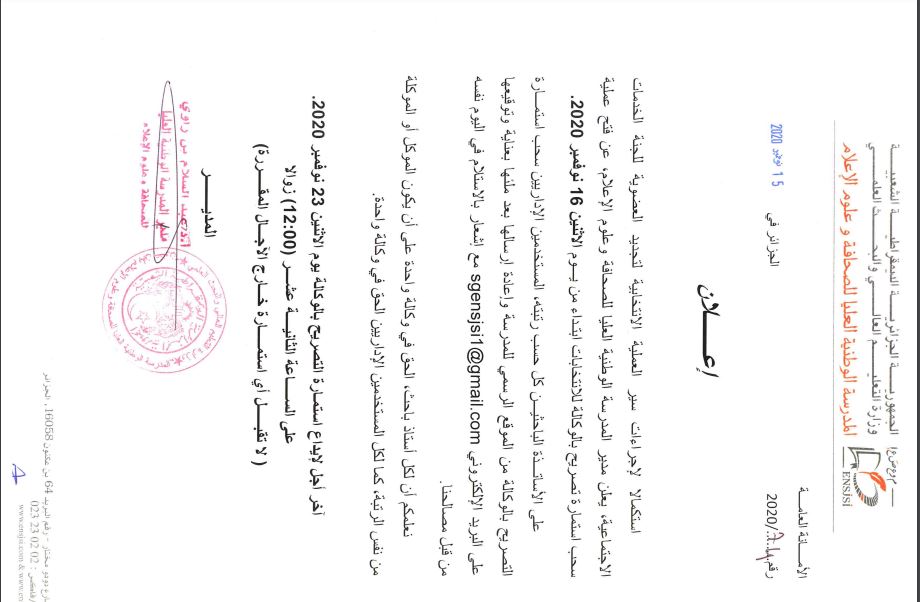 الجمهوريـــة الجزائريـــة الديمقراطيـــة الشعبيـــة
وزارة التعليـــم العالـــي والبحـــث العلمـــي
المدرسة الوطنية العليا للصحافة و علوم الإعلام
ENSJSI
الأمـــانة العامـــة
رقم /2020
الجزائر في
15 نوفمبر 2020
إعـــلان
استكمالا لإجراءات سير العملية الانتخابية لتجديد العضوية للجنة الخدمات
الاجتماعية، يعلن مدير المدرسة الوطنية العليا للصحافة وعلوم الإعلام، عن فتح عملية
سحب استمارة تصريح بالوكالة للانتخابات ابتداء من يـــوم الاثنين 16 نوفمبر 2020.
على الأساتـــذة الباحثيـــن كل حسب رتبته، المستخدمين الإداريين سحب استمـــارة
التصريح بالوكالة من الموقع الرسمي للمدرسة وإعادة إرسالها بعد ملئها بعناية وتوقيعها
على البريد الإلكتروني sgensjsi1@gmail.com مع إشعار بالاستلام في اليوم نفسه
من قبل مصالحنا.
نعلمكم أن لكل أستاذ باحث، الحق في وكالة واحدة على أن يكون الموكل أو الموكلة
من نفس الرتبة، كما لكل المستخدمين الإداريين الحق في وكالة واحدة.
آخر أجل لإيداع استمارة التصريح بالوكالة يوم الاثنين 23 نوفمبر 2020.
على الســـاعة الثانيـــة عشـــر (12:00) زوالا
( لا تقبـــل أي استمـــارة خـــارج الآجـــال المقـــررة)
المديـــر
عبد السلام بن زاوي
مدير المدرسة الوطنية العليا
للصحافة و علوم الإعلام
دودو مختار - رقم البريد 64 بن عكنون 16058، الجزائر
023 23 02 02 :
www.ensjsi.com &